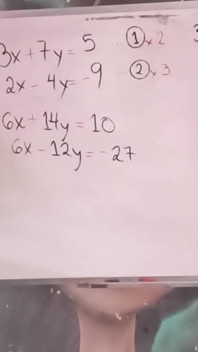 3x + 7y = 5 ... ① x 2
2x - 4y = -9 ② x 3
6x + 14y = 10
6x - 12y = -27